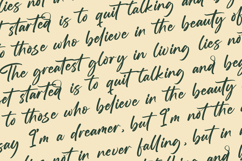 lies not in
started is to quit talking and
to those who believe in the beauty of
The greatest glory in living lies no
et started is to quit talking and beg
to those who believe in the beauty
say I'm a dreamer, but I'm not the
not in never falling, but in